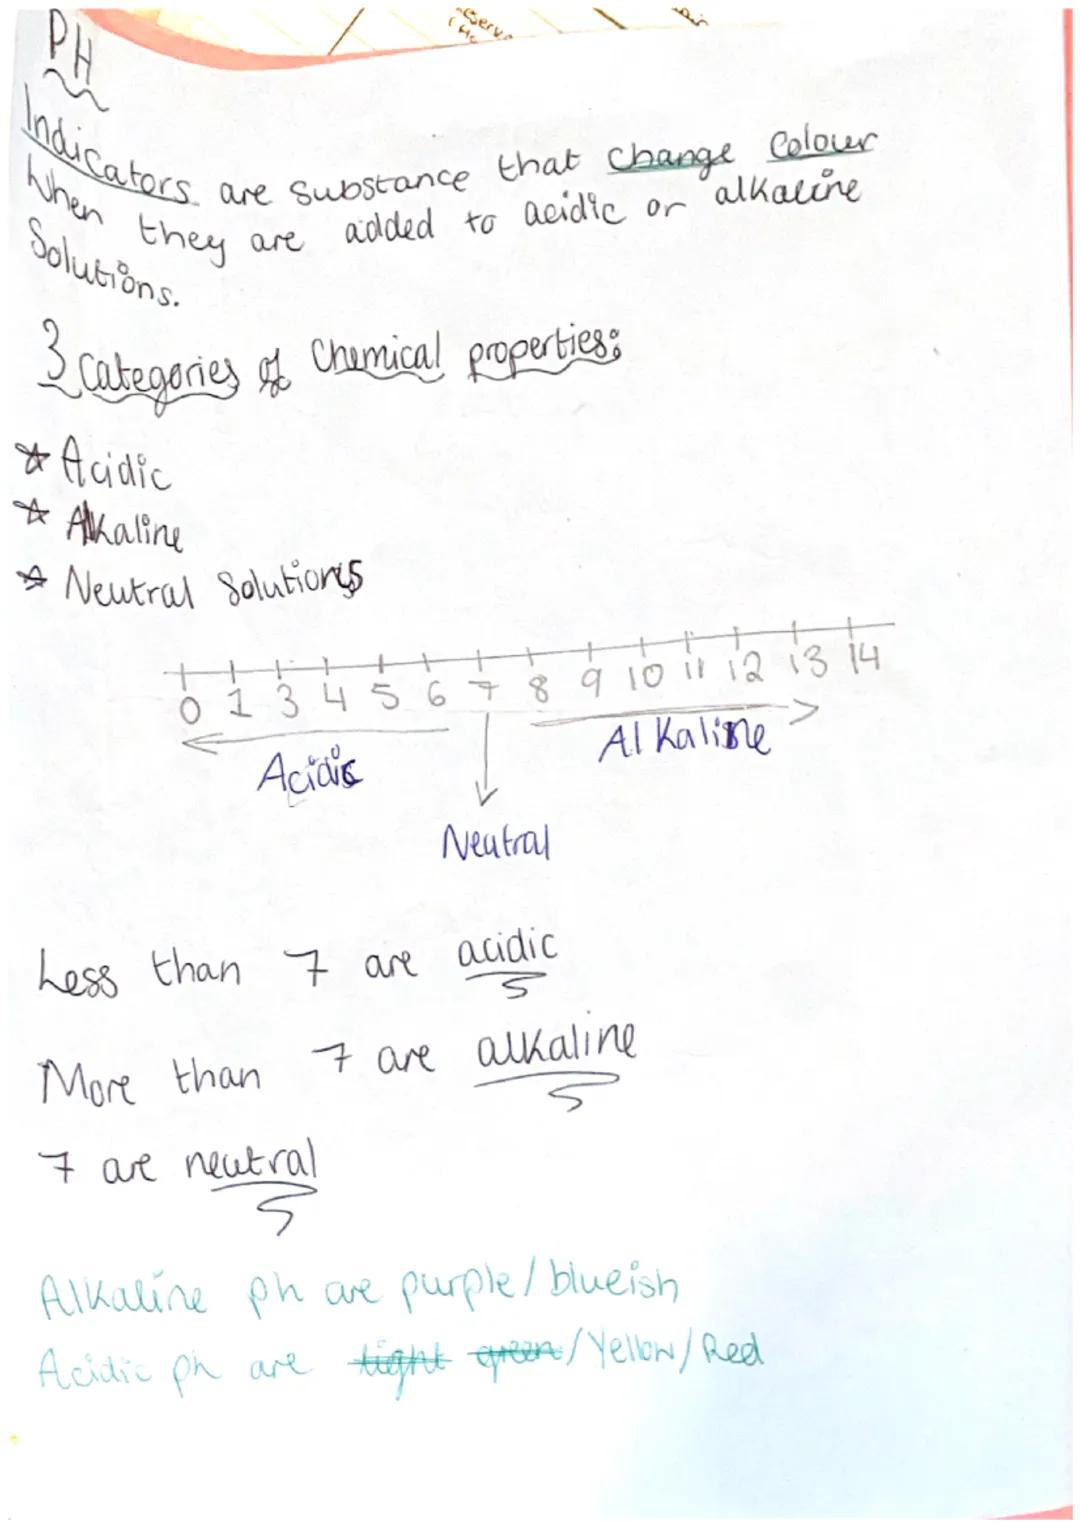 PH
Indicators are substance that change colour
When they are added to acidic or alkaline
Solutions.
3 Categories of Chemical properties:
Acidic
Alkaline
Neutral Solutions
0 1 3 4 5 6 7 8 9 10 11 12 13 14
Acidic
Alkaline
Neutral
Less than 7 are acidic
More than 7 are alkaline
7 are neutral
Alkaline ph are purple/blueish
Acidic ph are light green/Yellow/Red